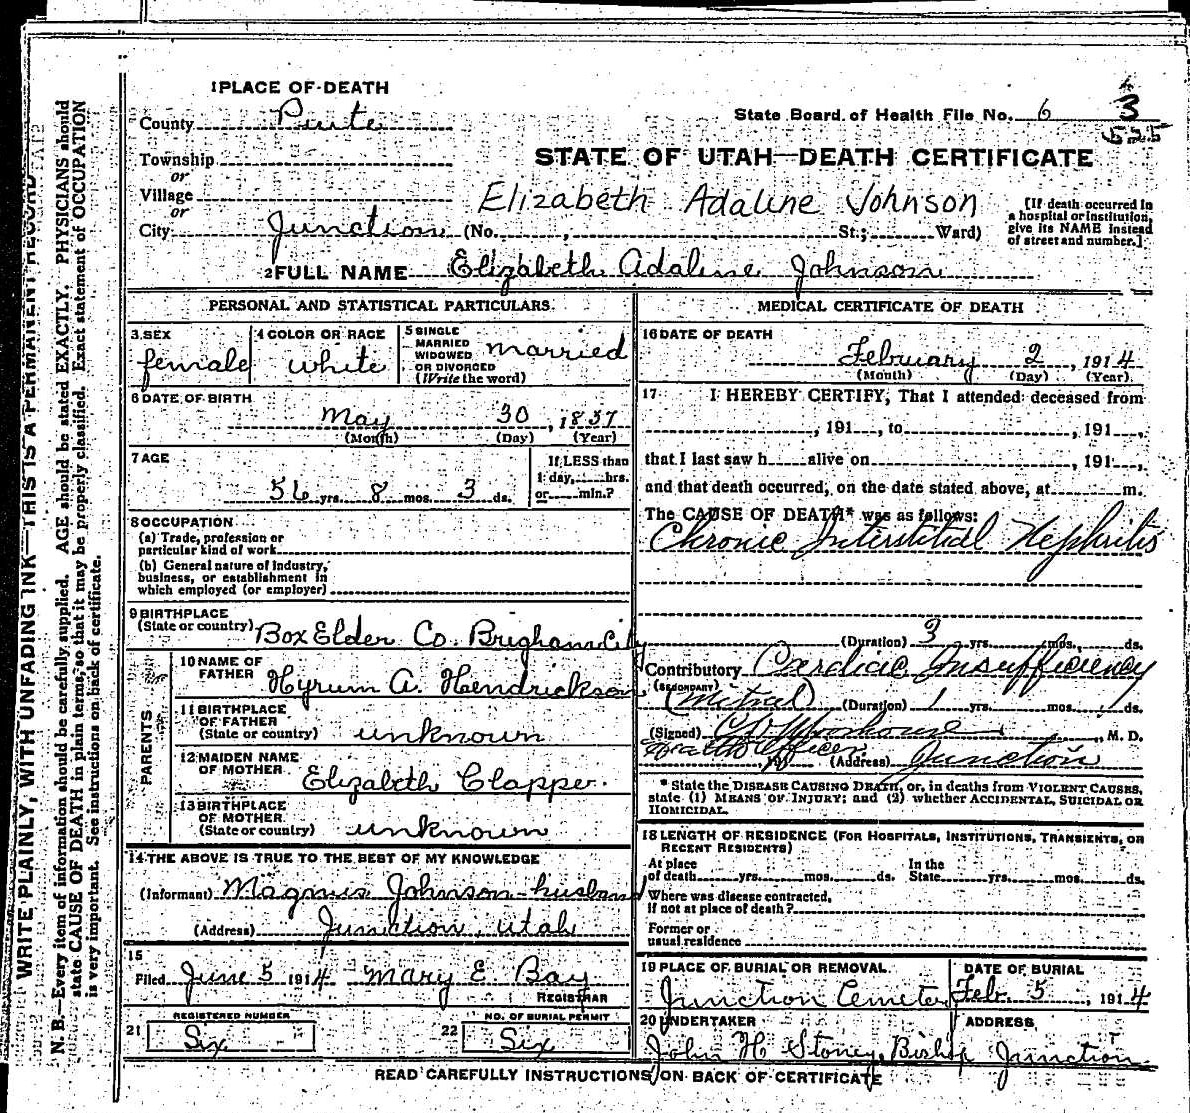 1 PLACE OF DEATH
County Piute
State Board of Health File No. 6 3
525
Township
or
Village
or
City Junction (No. , St.; Ward)
STATE OF UTAH—DEATH CERTIFICATE
Elizabeth Adaline Johnson
[If death occurred in
a hospital or institution,
give its NAME instead
of street and number.]
2 FULL NAME Elizabeth Adaline Johnson
PERSONAL AND STATISTICAL PARTICULARS
3 SEX
female
4 COLOR OR RACE
white
5 SINGLE
MARRIED
WIDOWED
OR DIVORCED
(Write the word)
married
6 DATE OF BIRTH
May 30, 1857
(Month) (Day) (Year)
7 AGE
56 yrs. 8 mos. 3 ds.
If LESS than
1 day, hrs.
or min.?
8 OCCUPATION
(a) Trade, profession or
particular kind of work
(b) General nature of industry,
business, or establishment in
which employed (or employer)
9 BIRTHPLACE
(State or country) Box Elder Co. Brigham City
PARENTS
10 NAME OF
FATHER Hyrum A. Hendrickson
11 BIRTHPLACE
OF FATHER
(State or country) unknown
12 MAIDEN NAME
OF MOTHER Elizabeth Clapper.
13 BIRTHPLACE
OF MOTHER
(State or country) unknown
14 THE ABOVE IS TRUE TO THE BEST OF MY KNOWLEDGE
(Informant) Magnus Johnson - husband
(Address) Junction, Utah
15
Filed June 5 1914 Mary E. Bay
REGISTRAR
REGISTERED NUMBER
21 Six
NO. OF BURIAL PERMIT
22 Six
MEDICAL CERTIFICATE OF DEATH
16 DATE OF DEATH
February 2, 1914
(Month) (Day) (Year)
17 I HEREBY CERTIFY, That I attended deceased from
, 191 , to , 191 ,
that I last saw h alive on , 191 ,
and that death occurred, on the date stated above, at m.
The CAUSE OF DEATH* was as follows:
Chronic Interstitial Nephritis
(Duration) 3 yrs. mos. ds.
Contributory Cardiac Insufficiency
(SECONDARY)
(Mitral) (Duration) 1 yrs. mos. ds.
(Signed) M. D.
Health Officer
191 (Address) Junction
* State the DISEASE CAUSING DEATH, or, in deaths from VIOLENT CAUSES,
state (1) MEANS OF INJURY; and (2) whether ACCIDENTAL, SUICIDAL OR
HOMICIDAL.
18 LENGTH OF RESIDENCE (FOR HOSPITALS, INSTITUTIONS, TRANSIENTS, OR
RECENT RESIDENTS)
At place
of death yrs. mos. ds.
In the
State yrs. mos. ds.
Where was disease contracted,
if not at place of death?
Former or
usual residence
19 PLACE OF BURIAL OR REMOVAL
Junction Cemetery
DATE OF BURIAL
Feb. 5, 1914
20 UNDERTAKER
John H Stoney, Bishop
ADDRESS
Junction
READ CAREFULLY INSTRUCTIONS ON BACK OF CERTIFICATE
WRITE PLAINLY, WITH UNFADING INK—THIS IS A PERMANENT RECORD
N. B.—Every item of information should be carefully supplied. AGE should be stated EXACTLY. PHYSICIANS should
state CAUSE OF DEATH in plain terms, so that it may be properly classified. Exact statement of OCCUPATION
is very important. See instructions on back of certificate.